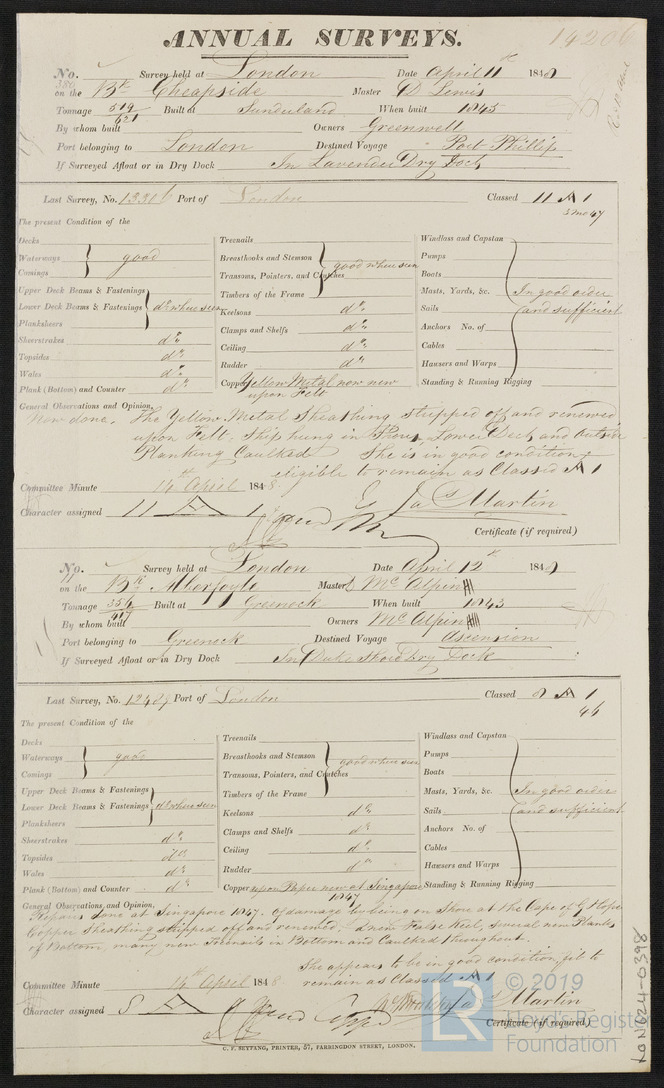 14206
ANNUAL SURVEYS.
No. Survey held at London Date April 11th 1848
380
on the Bk Cheapside Master D Lewis
Tonnage 519/621 Built at Sunderland When built 1845
By whom built Owners Greenwell
Port belonging to London Destined Voyage Port Phillip
If Surveyed Afloat or in Dry Dock In Lavender Dry Dock
Last Survey, No. 13316 Port of London Classed 11 A 1
3 mo 47
The present Condition of the
Decks
Waterways good
Comings
Upper Deck Beams & Fastenings
Lower Deck Beams & Fastenings do where seen
Planksheers
Sheerstrakes do
Topsides do
Wales do
Plank (Bottom) and Counter do
Treenails
Breasthooks and Stemson good where seen
Transoms, Pointers, and Crutches
Timbers of the Frame
Keelsons do
Clamps and Shelfs do
Ceiling do
Rudder do
Copper Yellow Metal now new
upon Felt
Windlass and Capstan
Pumps
Boats
Masts, Yards, &c. In good order
Sails and sufficient
Anchors No. of
Cables
Hausers and Warps
Standing & Running Rigging
General Observations and Opinion,
Now done, The Yellow Metal Sheathing stripped off and renewed
upon Felt, Ship hung in Shores, Lower Deck and Outside
Planking Caulked She is in good condition &
eligible to remain as Classed A 1
Committee Minute 14th April 1848
Character assigned 11 A 1 Jas Martin
Certificate (if required)
No. Survey held at London Date April 12th 1848
on the Bk Aberfoyle Master McAlpin
Tonnage 356/417 Built at Greenock When built 1843
By whom built Owners McAlpin
Port belonging to Greenock Destined Voyage Ascension
If Surveyed Afloat or in Dry Dock In Duke Shore Dry Dock
Last Survey, No. 12429 Port of London Classed 8 A 1
46
The present Condition of the
Decks
Waterways good
Comings
Upper Deck Beams & Fastenings
Lower Deck Beams & Fastenings do where seen
Planksheers
Sheerstrakes do
Topsides do
Wales do
Plank (Bottom) and Counter do
Treenails
Breasthooks and Stemson good where seen
Transoms, Pointers, and Crutches
Timbers of the Frame
Keelsons do
Clamps and Shelfs do
Ceiling do
Rudder do
Copper upon Paper new at Singapore
1847
Windlass and Capstan
Pumps
Boats
Masts, Yards, &c. In good order
Sails and sufficient
Anchors No. of
Cables
Hausers and Warps
Standing & Running Rigging
General Observations and Opinion,
Repairs done at Singapore 1847. Of damage by being on Shore at the Cape of G Hope
Copper Sheathing stripped off and renewed. a new False Keel, several new Planks
of Bottom, many new Treenails in Bottom and Caulked throughout.
She appears to be in good condition, fit to
remain as Classed A 1
Committee Minute 14th April 1848
Character assigned 8 A 1 Jas Martin
Certificate (if required)
C. F. SEYFANG, PRINTER, 57, FARRINGDON STREET, LONDON.
LR © 2019
Lloyd's Register
Foundation
LON624-0398